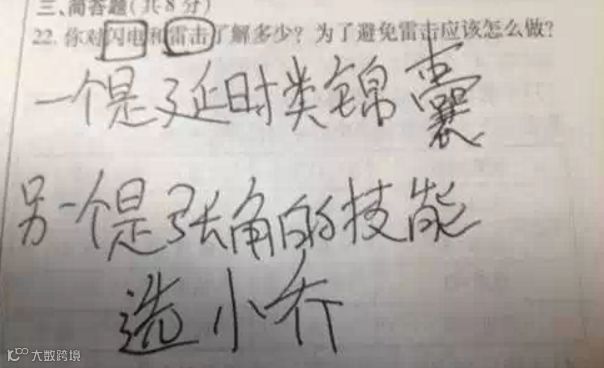 三、简答题(共8分)
22. 你对闪电和雷击了解多少？为了避免雷击应该怎么做?
一个是延时类锦囊
另一个是张角的技能
选小乔
大数跨境